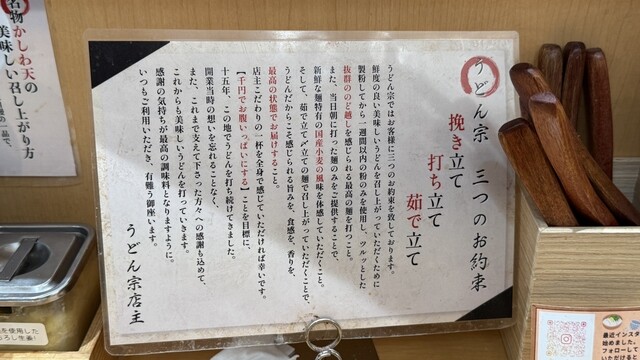 うどん宗 三つのお約束
挽き立て
打ち立て
茹で立て
うどん宗ではお客様に三つのお約束を致しております。
鮮度の良い美味しいうどんを召し上がっていただくために
製粉してから一週間以内の粉のみを使用し、ツルッとした
抜群ののど越しを感じられる最高の麺を打つこと。
また、当日朝に打った麺のみをご提供することで、
新鮮な麺特有の国産小麦の風味を体感していただくこと。
そして、茹で立て〆立ての麺で召し上がっていただくことで、
うどんだからこそ感じられる旨みを、食感を、香りを、
最高の状態でお届けすること。
店主こだわりの一杯を全身で感じていただければ幸いです。
【千円でお腹いっぱいにする】ことを目標に、
十五年、この地でうどんを打ち続けてきました。
開業当時の想いを忘れることなく、
また、これまで支えて下さった方々への感謝も込めて、
これからも美味しいうどんを打っていきます。
感謝の気持ちが最高の調味料となりますように。
いつもご利用いただき、有難う御座います。
うどん宗店主
名物かしわ天の
美味しい召し上がり方
を使用した
おろし生姜!
最近インスタ
始めました。
フォローして